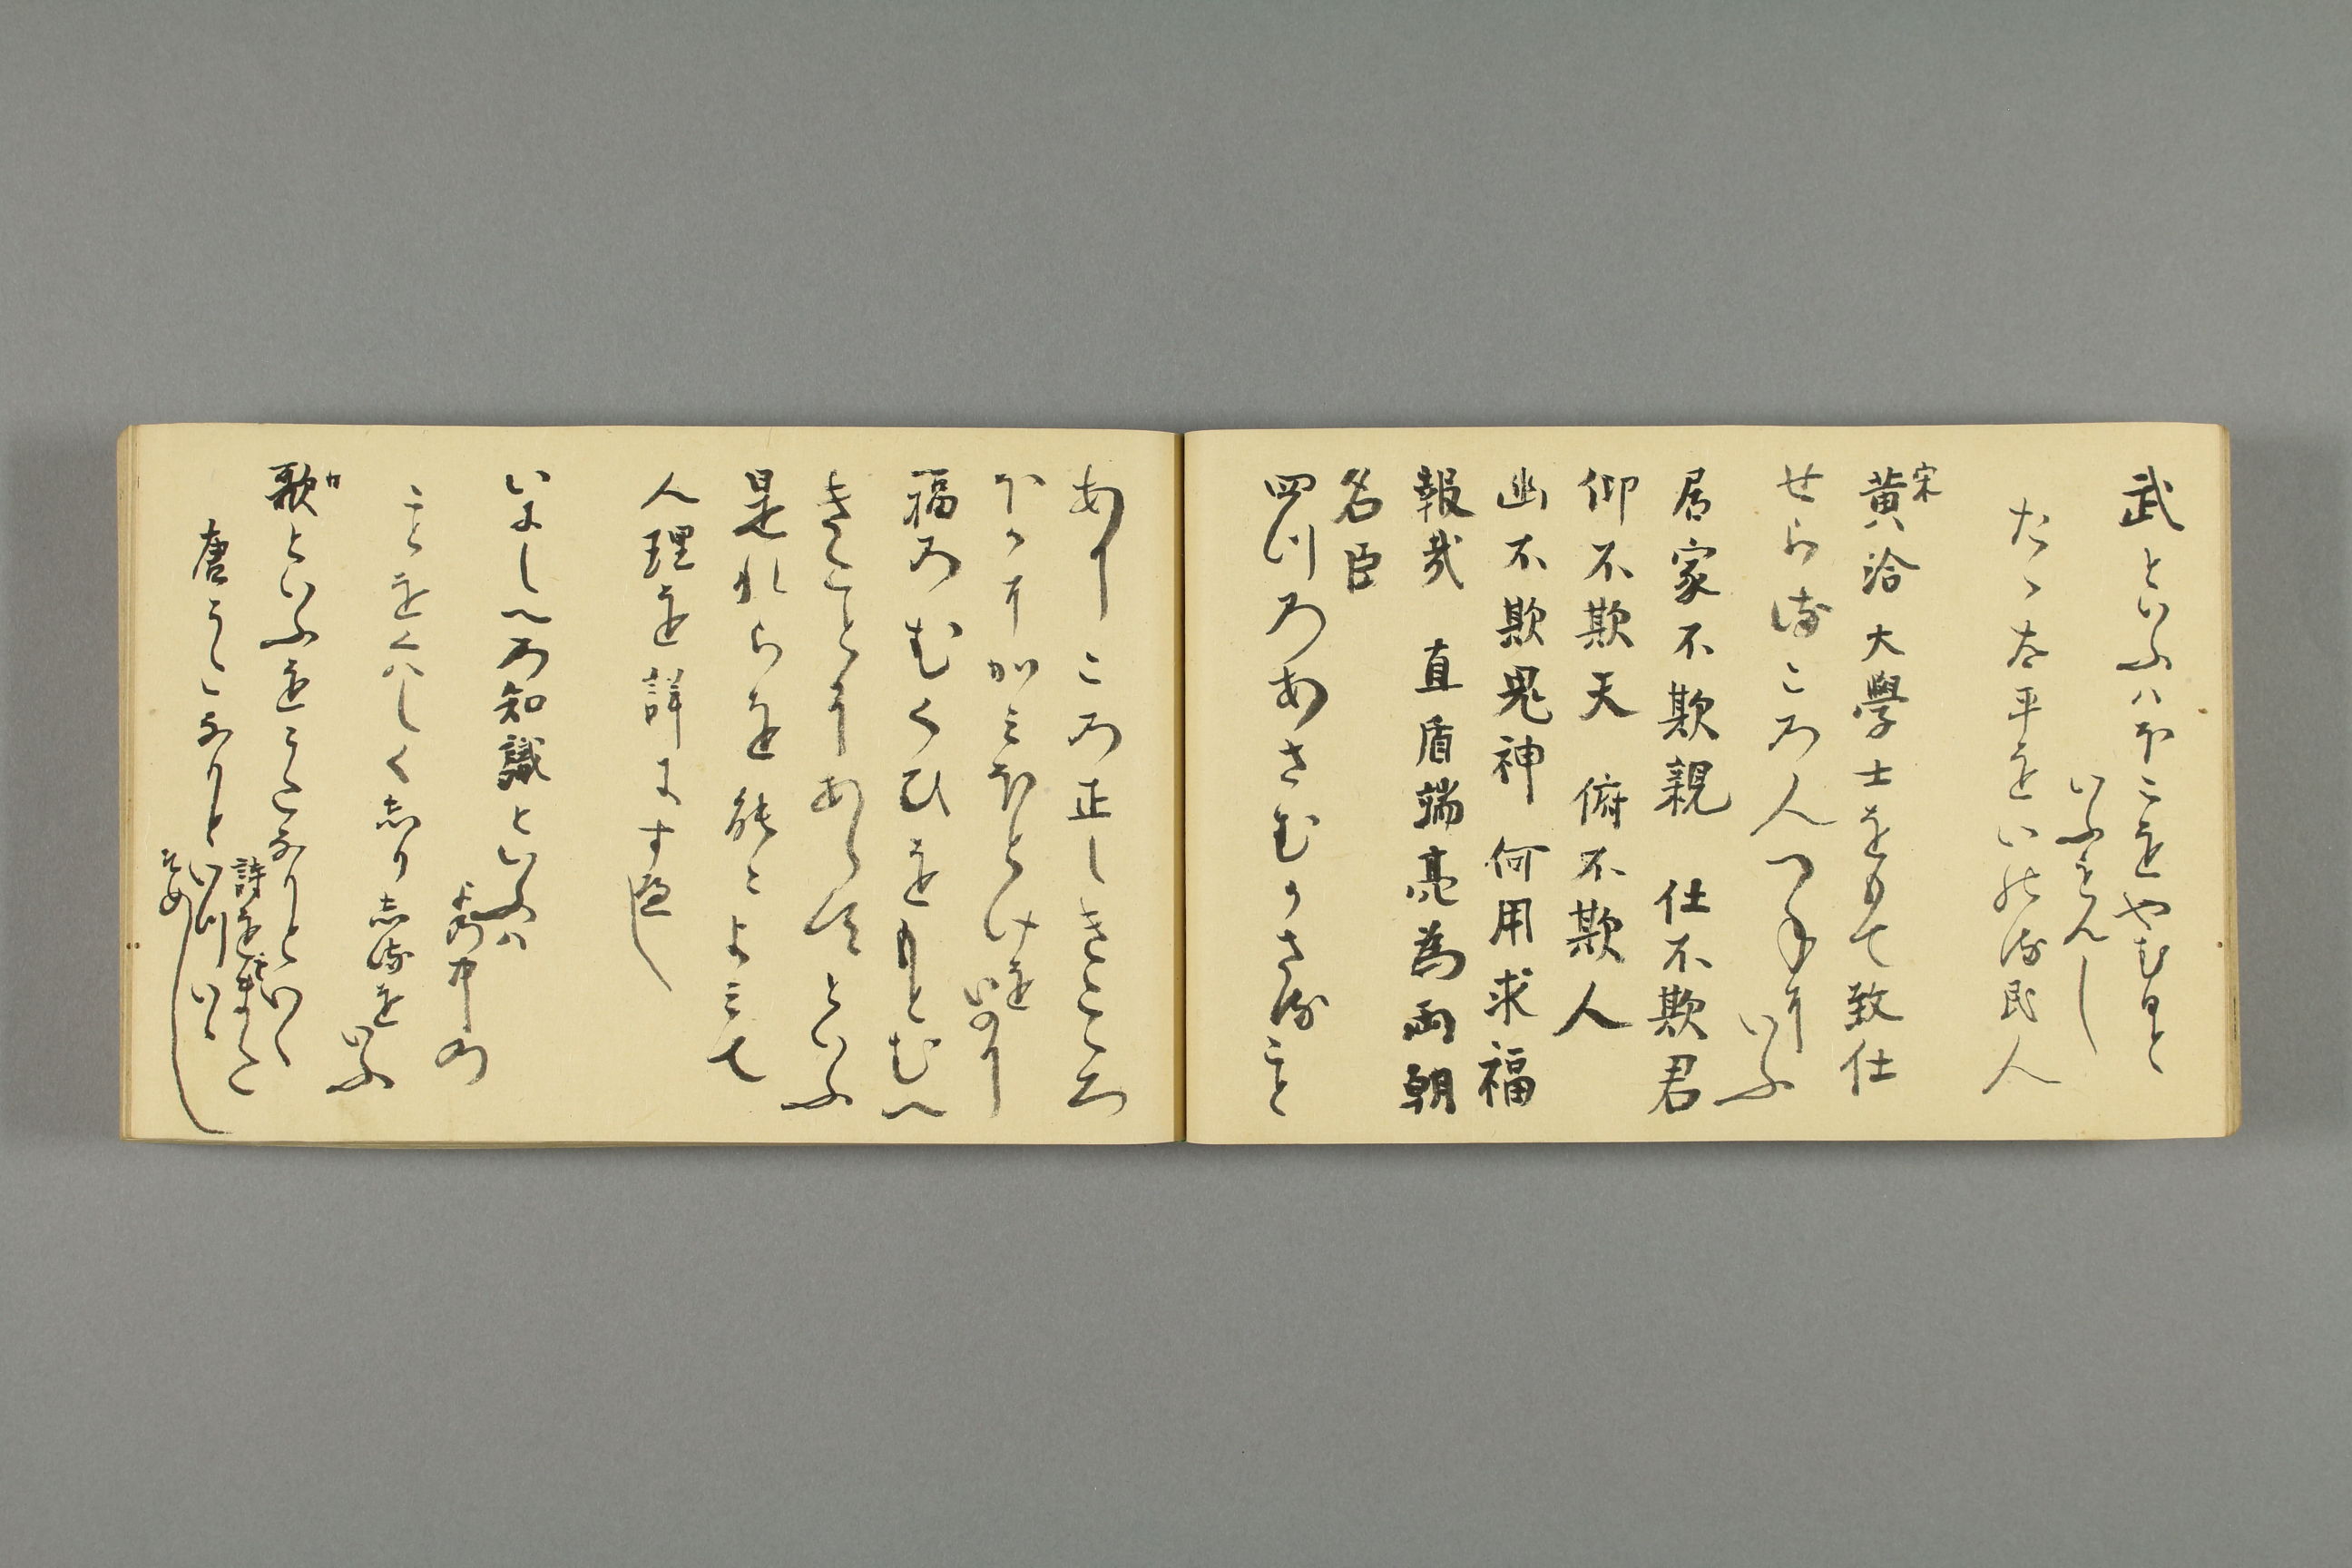 武といふハほこをやむると
いふをんし
たゝ太平をいのる民人
宋
黄洽大學士をもて致仕
せらるころ人つねにいふ
居家不欺親 仕不欺君
仰不欺天 俯不欺人
幽不欺鬼神 何用求福
報哉 直盾端亮為両朝
名臣
四川のあさむかさること
ありころ正しきところ
ほかにかみほとけをいのり
福のむくひをもとむへ
きことにあらすといふ
是れらを能こよみて
人理を詳にすへし
いにしへの知識といふハ
よの中の
ことをくハしく志り志るを
いふ
歌といふをうたなりといひ
詩をまこと
唐うたなりといひ